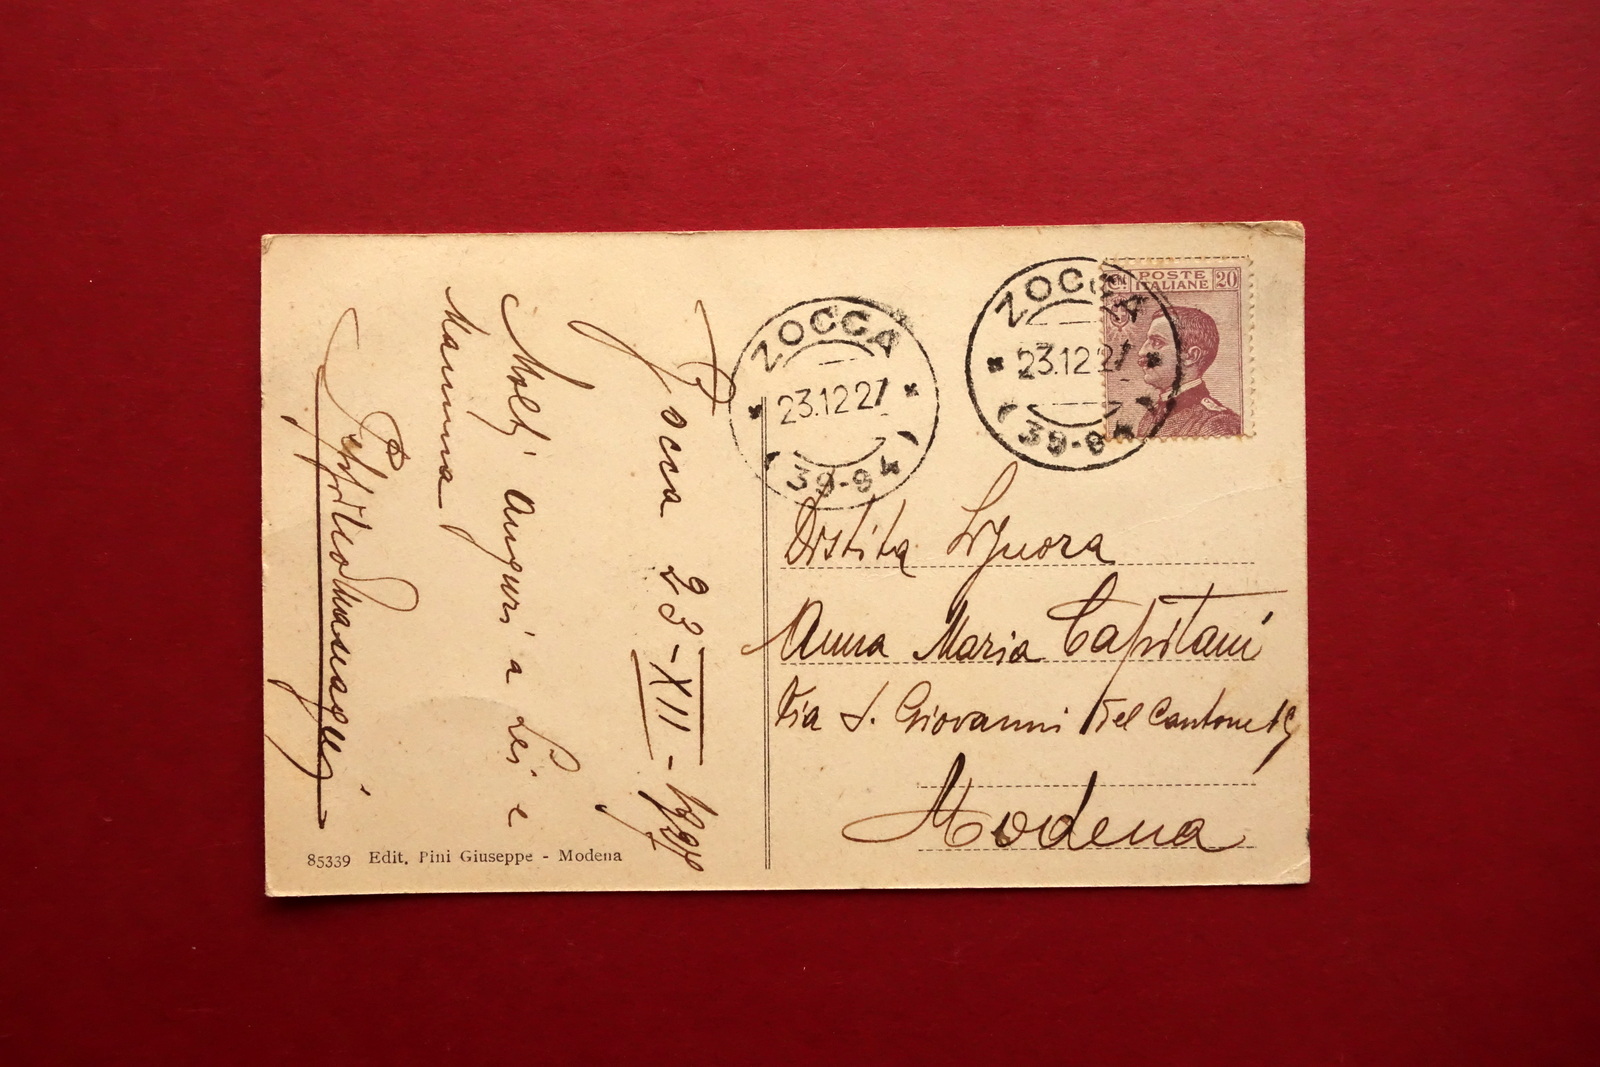 Zocca 23-XII-1927
Molti Auguri a Lei e
Mamma
ZOCCA
23.12.27
(39-94)
ZOCCA
23.12.27
(39-94)
POSTE
ITALIANE
20
Distita Signora
Anna Maria Capitani
Via S. Giovanni del Cantone 19
Modena
85339 Edit. Pini Giuseppe - Modena